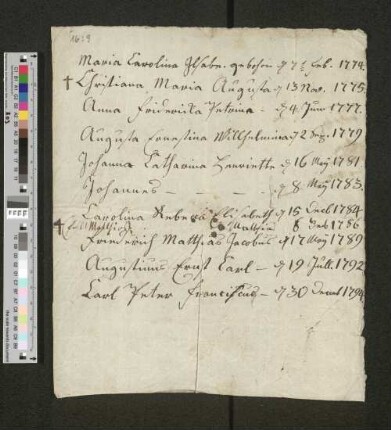 1629
Maria Carolina Ilsabe. gebohen d 7t Feb. 1774.
† Christiana Maria Augusta d 13 Nov. 1775
Anna Friderika Petrina - d 4 Juni 1777.
Augusta Ernestina Willhelmina d 2 Sep. 1779
Johanna Catharina Henriette d 16 May 1781
Johannes - - - d 8 May 1783.
Carolina Rebecka Elisabeth d 15 Decb 1784
† Matthias 8 Feb 1786
Friederich Matthias Jacobus d 17 May 1789
Augustinus Ernst Carl - d 19 Jull. 1792
Carl Peter Franciscus - d 30 Decemb 1794